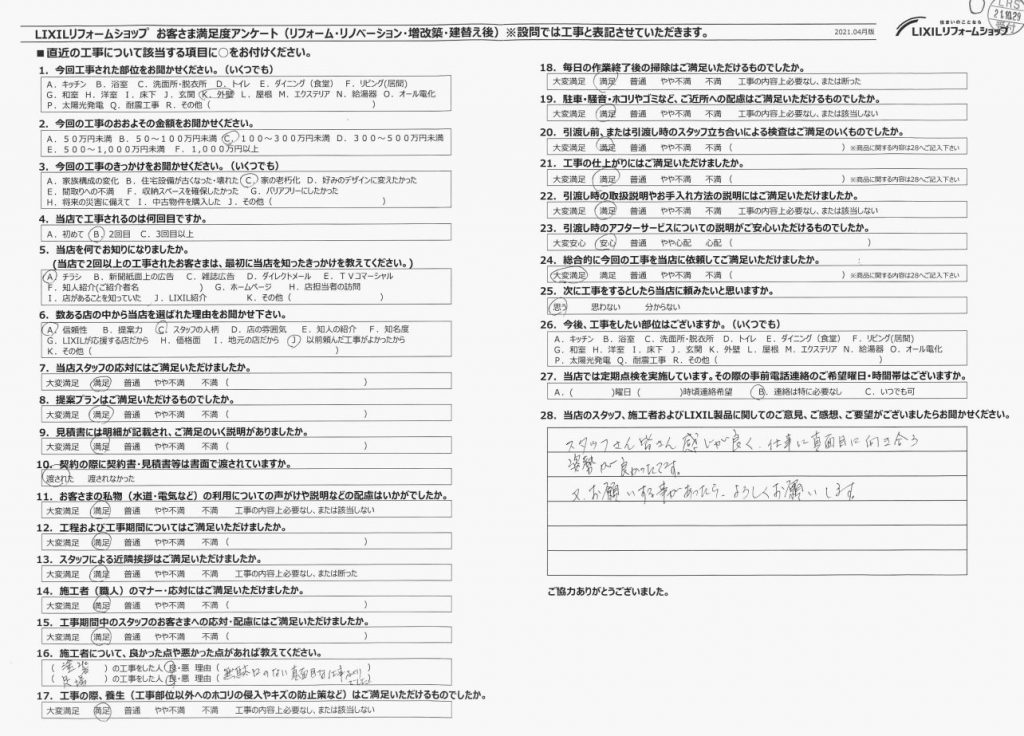 LIXILリフォームショップ お客さま満足度アンケート（リフォーム・リノベーション・増改築・建替え後）※設問では工事と表記させていただきます。
2021.04月版
住まいのことなら
LIXILリフォームショップ
21.10.29
■直近の工事について該当する項目に○をお付けください。
1．今回工事された部位をお聞かせください。（いくつでも）
A．キッチン B．浴室 C．洗面所・脱衣所 D．トイレ E．ダイニング（食堂） F．リビング(居間)
G．和室 H．洋室 I．床下 J．玄関 K．外壁 L．屋根 M．エクステリア N．給湯器 O．オール電化
P．太陽光発電 Q．耐震工事 R．その他（ ）
2．今回の工事のおおよその金額をお聞かせください。
A．50万円未満 B．50～100万円未満 C．100～300万円未満 D．300～500万円未満
E．500～1,000万円未満 F．1,000万円以上
3．今回の工事のきっかけをお聞かせください。（いくつでも）
A．家族構成の変化 B．住宅設備が古くなった・壊れた C．家の老朽化 D．好みのデザインに変えたかった
E．間取りへの不満 F．収納スペースを確保したかった G．バリアフリーにしたかった
H．将来の災害に備えて I．中古物件を購入した J．その他（ ）
4．当店で工事されるのは何回目ですか。
A．初めて B．2回目 C．3回目以上
5．当店を何でお知りになりましたか。
(当店で2回以上の工事されたお客さまは、最初に当店を知ったきっかけを教えてください。)
A．チラシ B．新聞紙面上の広告 C．雑誌広告 D．ダイレクトメール E．TVコマーシャル
F．知人紹介(ご紹介者名 ) G．ホームページ H．店担当者の訪問
I．店があることを知っていた J．LIXIL紹介 K．その他（ ）
6．数ある店の中から当店を選ばれた理由をお聞かせ下さい。
A．信頼性 B．提案力 C．スタッフの人柄 D．店の雰囲気 E．知人の紹介 F．知名度
G．LIXILが応援する店だから H．価格面 I．地元の店だから J．以前頼んだ工事がよかったから
K．その他（ ）
7．当店スタッフの応対にはご満足いただけましたか。
大変満足 満足 普通 やや不満 不満（ ）
8．提案プランはご満足いただけるものでしたか。
大変満足 満足 普通 やや不満 不満（ ）
9．見積書には明細が記載され、ご満足のいく説明がありましたか。
大変満足 満足 普通 やや不満 不満（ ）
10．契約の際に契約書・見積書等は書面で渡されていますか。
渡された 渡されなかった
11．お客さまの私物（水道・電気など）の利用についての声がけや説明などの配慮はいかがでしたか。
大変満足 満足 普通 やや不満 不満 工事の内容上必要なし、または該当しない
12．工程および工事期間についてはご満足いただけましたか。
大変満足 満足 普通 やや不満 不満（ ）
13．スタッフによる近隣挨拶はご満足いただけましたか。
大変満足 満足 普通 やや不満 不満 工事の内容上必要なし、または断った
14．施工者（職人）のマナー・応対にはご満足いただけましたか。
大変満足 満足 普通 やや不満 不満（ ）
15．工事期間中のスタッフのお客さまへの応対・配慮にはご満足いただけましたか。
大変満足 満足 普通 やや不満 不満（ ）
16．施工者について、良かった点や悪かった点があれば教えてください。
（ 塗装 ）の工事をした人 良・悪 理由（
（ ）の工事をした人 良・悪 理由（ ）
17．工事の際、養生（工事部位以外へのホコリの侵入やキズの防止策など）はご満足いただけるものでしたか。
大変満足 満足 普通 やや不満 不満 工事の内容上必要なし、または該当しない
18．毎日の作業終了後の掃除はご満足いただけるものでしたか。
大変満足 満足 普通 やや不満 不満 工事の内容上必要なし、または断った
19．駐車・騒音・ホコリやゴミなど、ご近所への配慮はご満足いただけるものでしたか。
大変満足 満足 普通 やや不満 不満 工事の内容上必要なし、または該当しない
20．引渡し前、または引渡し時のスタッフ立ち合いによる検査はご満足のいくものでしたか。
大変満足 満足 普通 やや不満 不満（ ）※商品に関する内容は28へご記入下さい
21．工事の仕上がりにはご満足いただけましたか。
大変満足 満足 普通 やや不満 不満（ ）※商品に関する内容は28へご記入下さい
22．引渡し時の取扱説明やお手入れ方法の説明にはご満足いただけましたか。
大変満足 満足 普通 やや不満 不満 工事の内容上必要なし、または該当しない
23．引渡し時のアフターサービスについての説明がご安心いただけるものでしたか。
大変安心 安心 普通 やや心配 心配（ ）
24．総合的に今回の工事を当店に依頼してご満足いただけましたか。
大変満足 満足 普通 やや不満 不満（ ）※商品に関する内容は28へご記入下さい
25．次に工事をするとしたら当店に頼みたいと思いますか。
思う 思わない 分からない
26．今後、工事をしたい部位はございますか。（いくつでも）
A．キッチン B．浴室 C．洗面所・脱衣所 D．トイレ E．ダイニング（食堂） F．リビング(居間)
G．和室 H．洋室 I．床下 J．玄関 K．外壁 L．屋根 M．エクステリア N．給湯器 O．オール電化
P．太陽光発電 Q．耐震工事 R．その他（ ）
27．当店では定期点検を実施しています。その際の事前電話連絡のご希望曜日・時間帯はございますか。
A．（ ）曜日（ ）時頃連絡希望 B．連絡は特に必要なし C．いつでも可
28．当店のスタッフ、施工者およびLIXIL製品に関してのご意見、ご感想、ご要望がございましたらお聞かせください。
スタッフさん皆さん感じが良く、仕事に真面目に向き合う
姿勢が良かったです。
又、お願いする事があったら、よろしくお願いします
ご協力ありがとうございました。